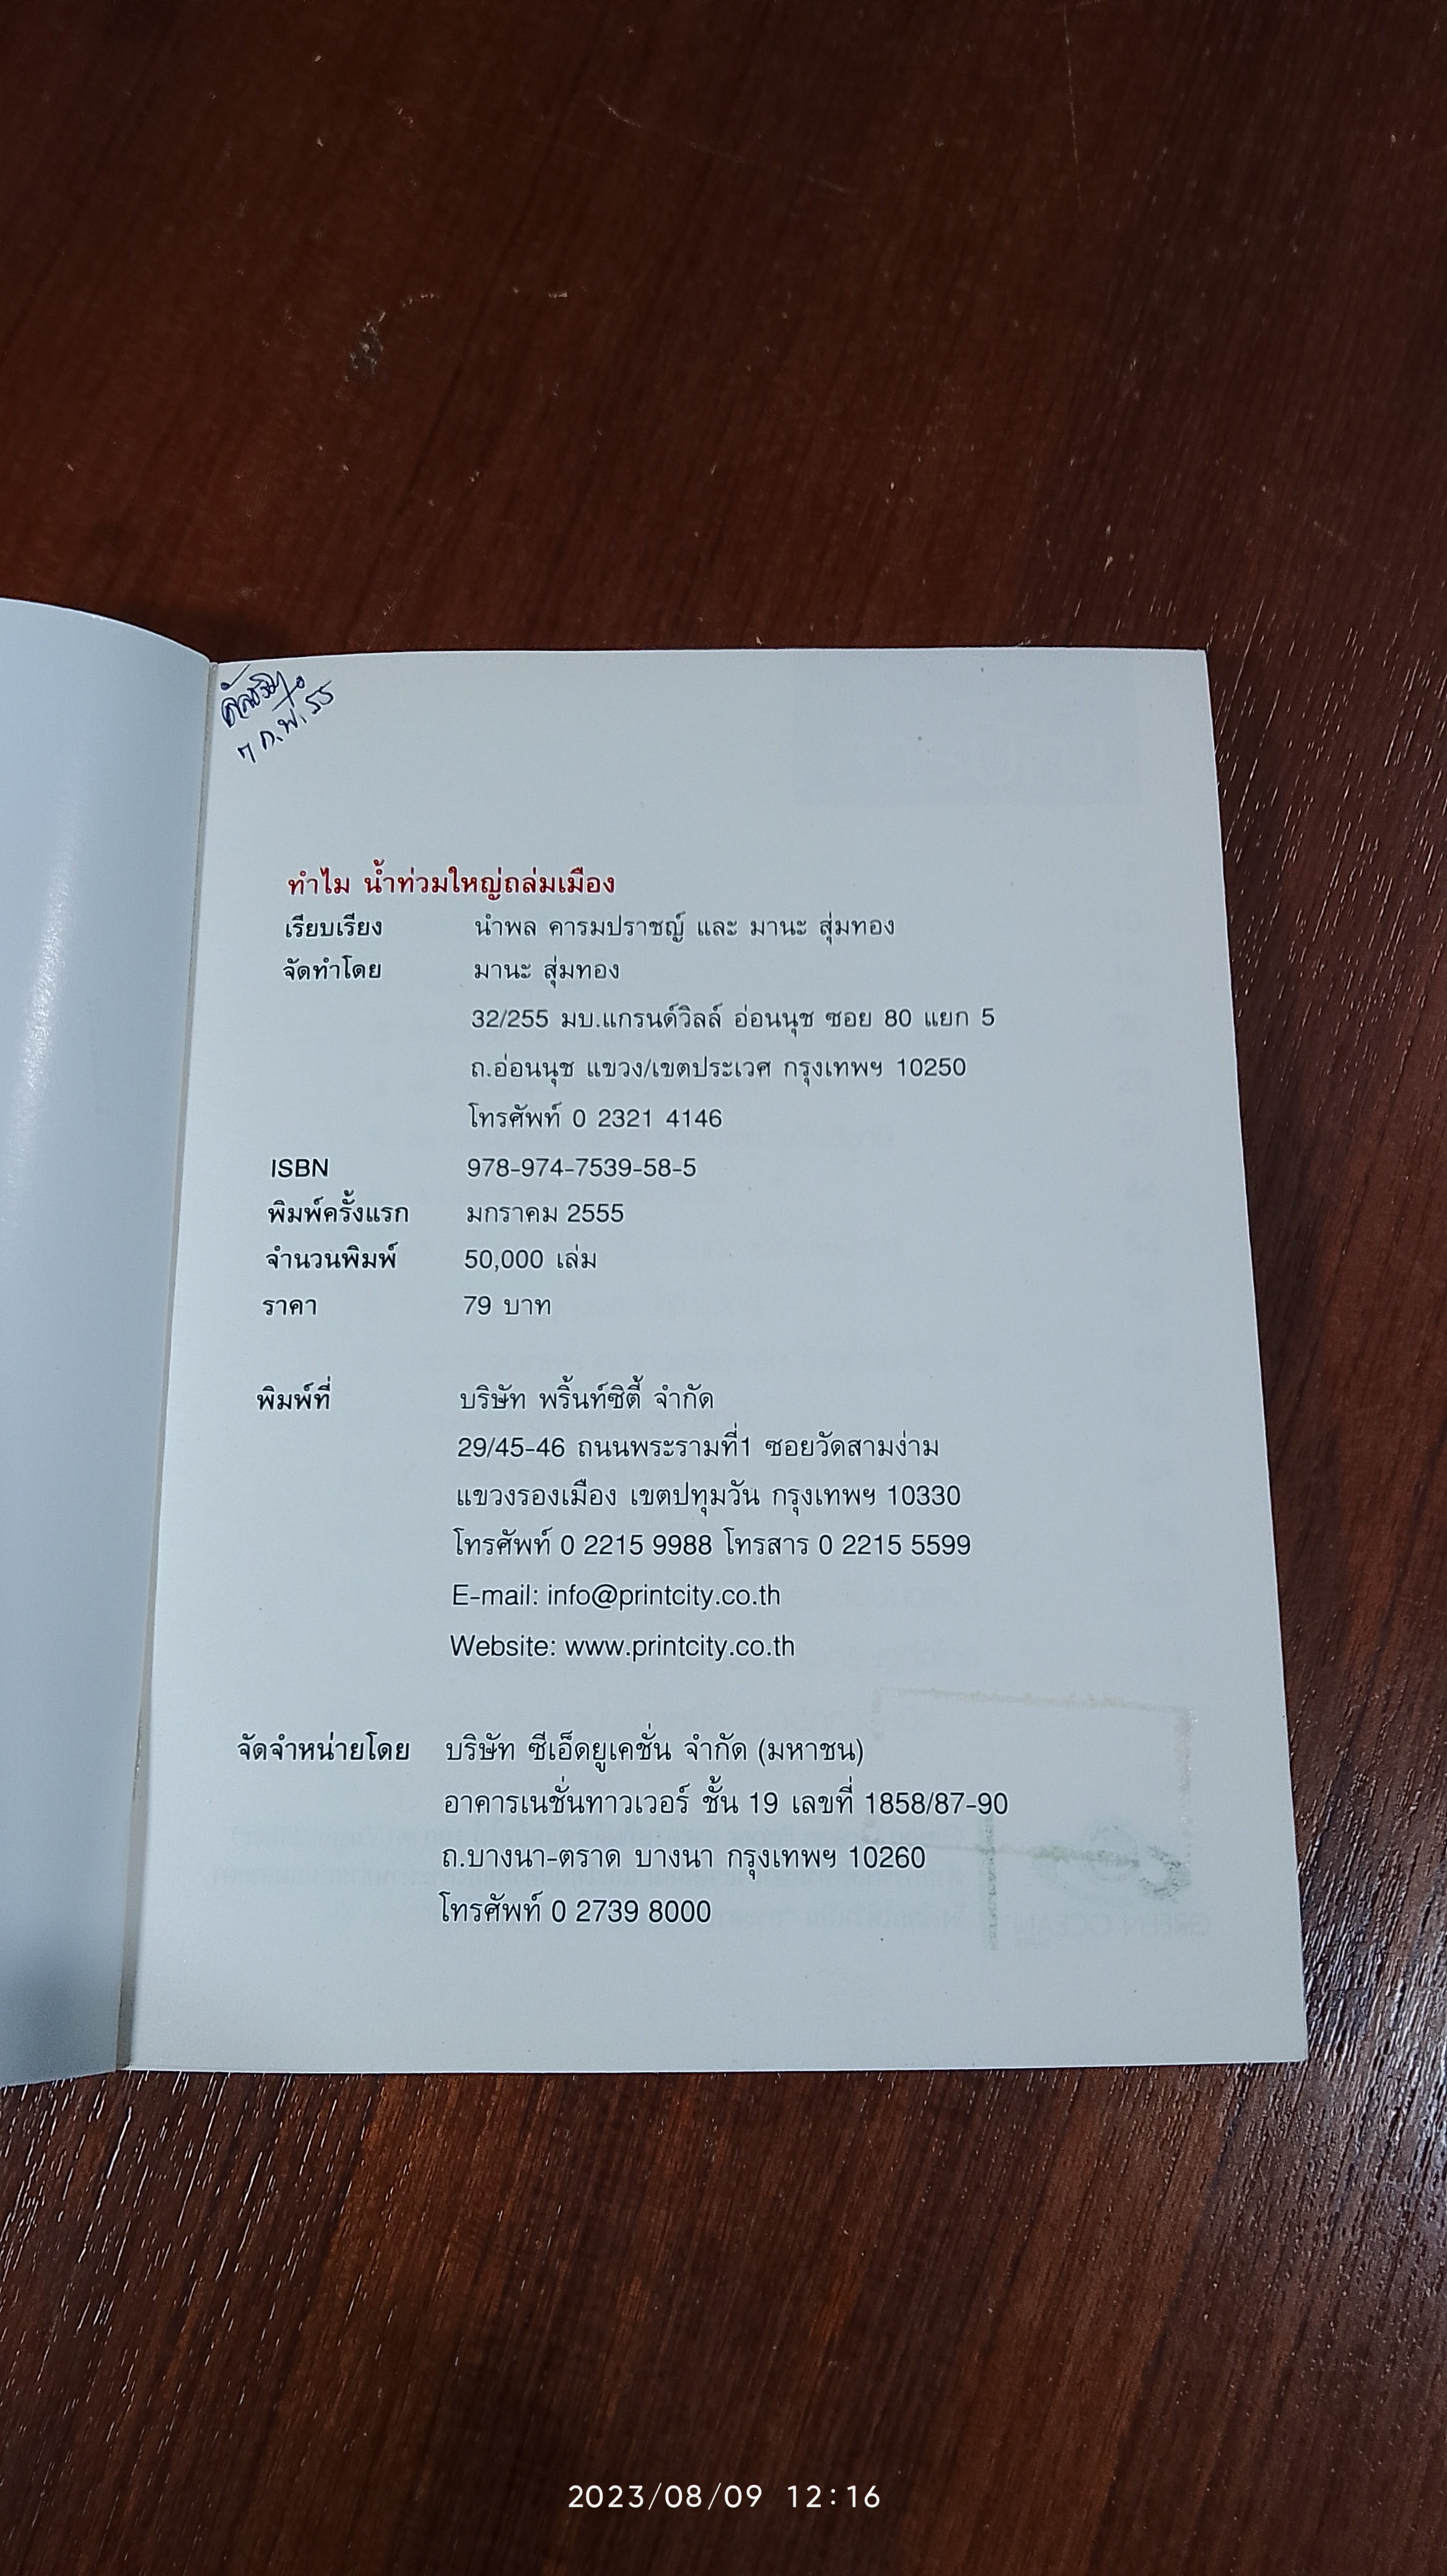 7 ก.พ. 55
ทำไม น้ำท่วมใหญ่ถล่มเมือง
เรียบเรียง นำพล คารมปราชญ์ และ มานะ สุ่มทอง
จัดทำโดย มานะ สุ่มทอง
32/255 มบ.แกรนด์วิลล์ อ่อนนุช ซอย 80 แยก 5
ถ.อ่อนนุช แขวง/เขตประเวศ กรุงเทพฯ 10250
โทรศัพท์ 0 2321 4146
ISBN 978-974-7539-58-5
พิมพ์ครั้งแรก มกราคม 2555
จำนวนพิมพ์ 50,000 เล่ม
ราคา 79 บาท
พิมพ์ที่ บริษัท พริ้นท์ซิตี้ จำกัด
29/45-46 ถนนพระรามที่1 ซอยวัดสามง่าม
แขวงรองเมือง เขตปทุมวัน กรุงเทพฯ 10330
โทรศัพท์ 0 2215 9988 โทรสาร 0 2215 5599
E-mail: info@printcity.co.th
Website: www.printcity.co.th
จัดจำหน่ายโดย บริษัท ซีเอ็ดยูเคชั่น จำกัด (มหาชน)
อาคารเนชั่นทาวเวอร์ ชั้น 19 เลขที่ 1858/87-90
ถ.บางนา-ตราด บางนา กรุงเทพฯ 10260
โทรศัพท์ 0 2739 8000
2023/08/09 12:16